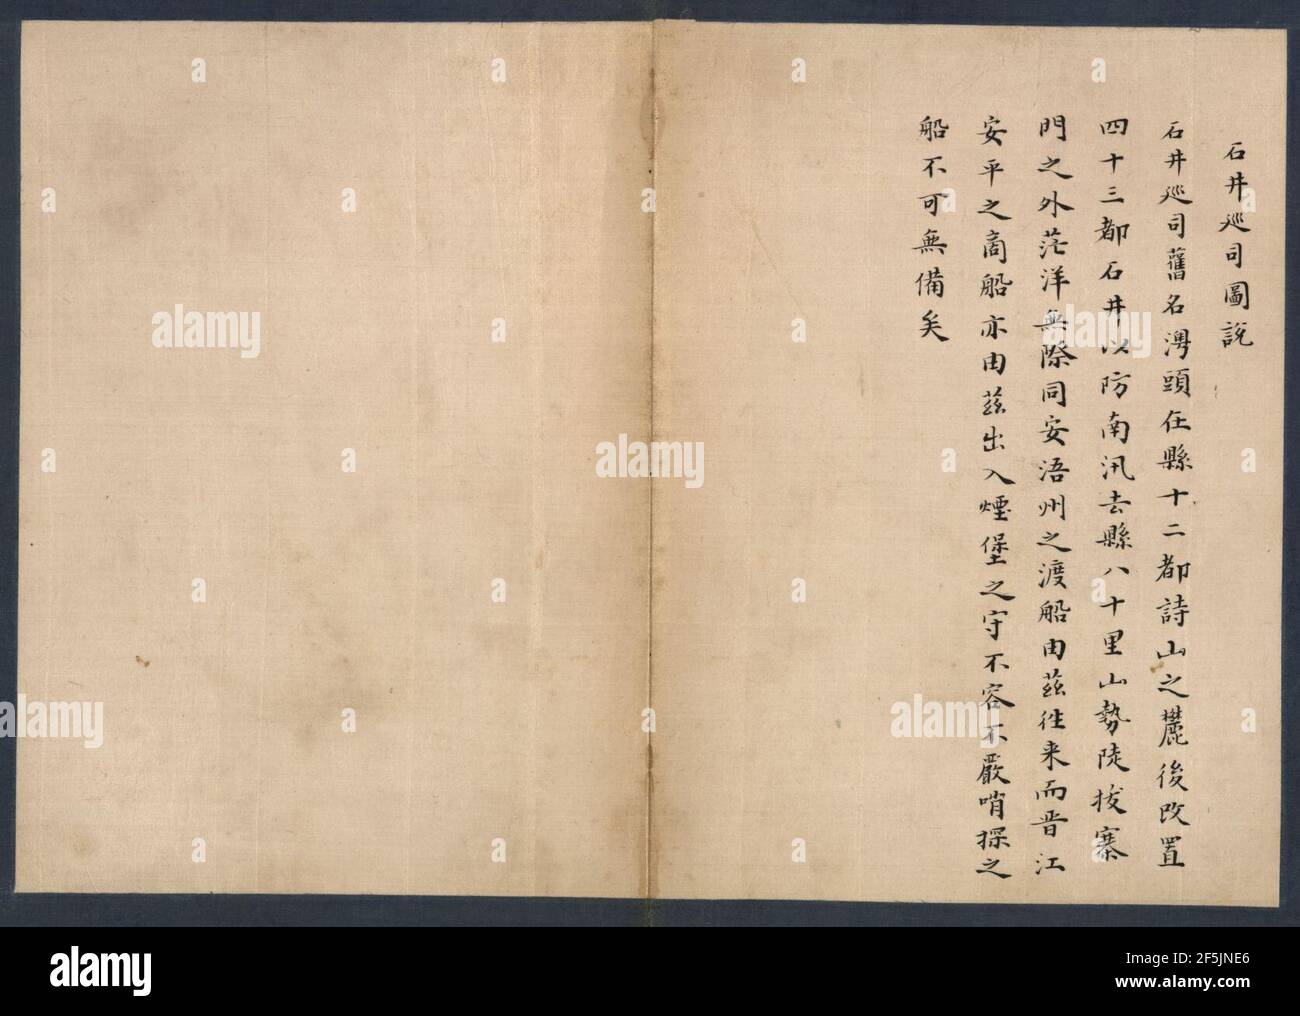 石井巡司圖説
石井巡司舊名灣頭在縣十二都詩山之麓後改置
四十三都石井以防南汛去縣八十里山勢陡拔寨
門之外茫洋無際同安浯州之渡船由茲往来而晋江
安平之商船亦由茲出入煙堡之守不容不嚴哨探之
船不可無備矣
alamy
alamy
alamy
alamy
alamy
alamy
Image ID: 2F5JNE6
www.alamy.com